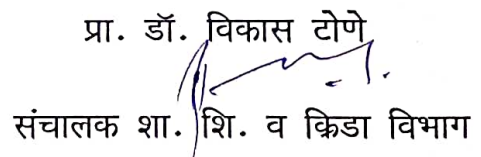 प्रा. डॉ. विकास टोणे
संचालक शा. शि. व क्रिडा विभाग